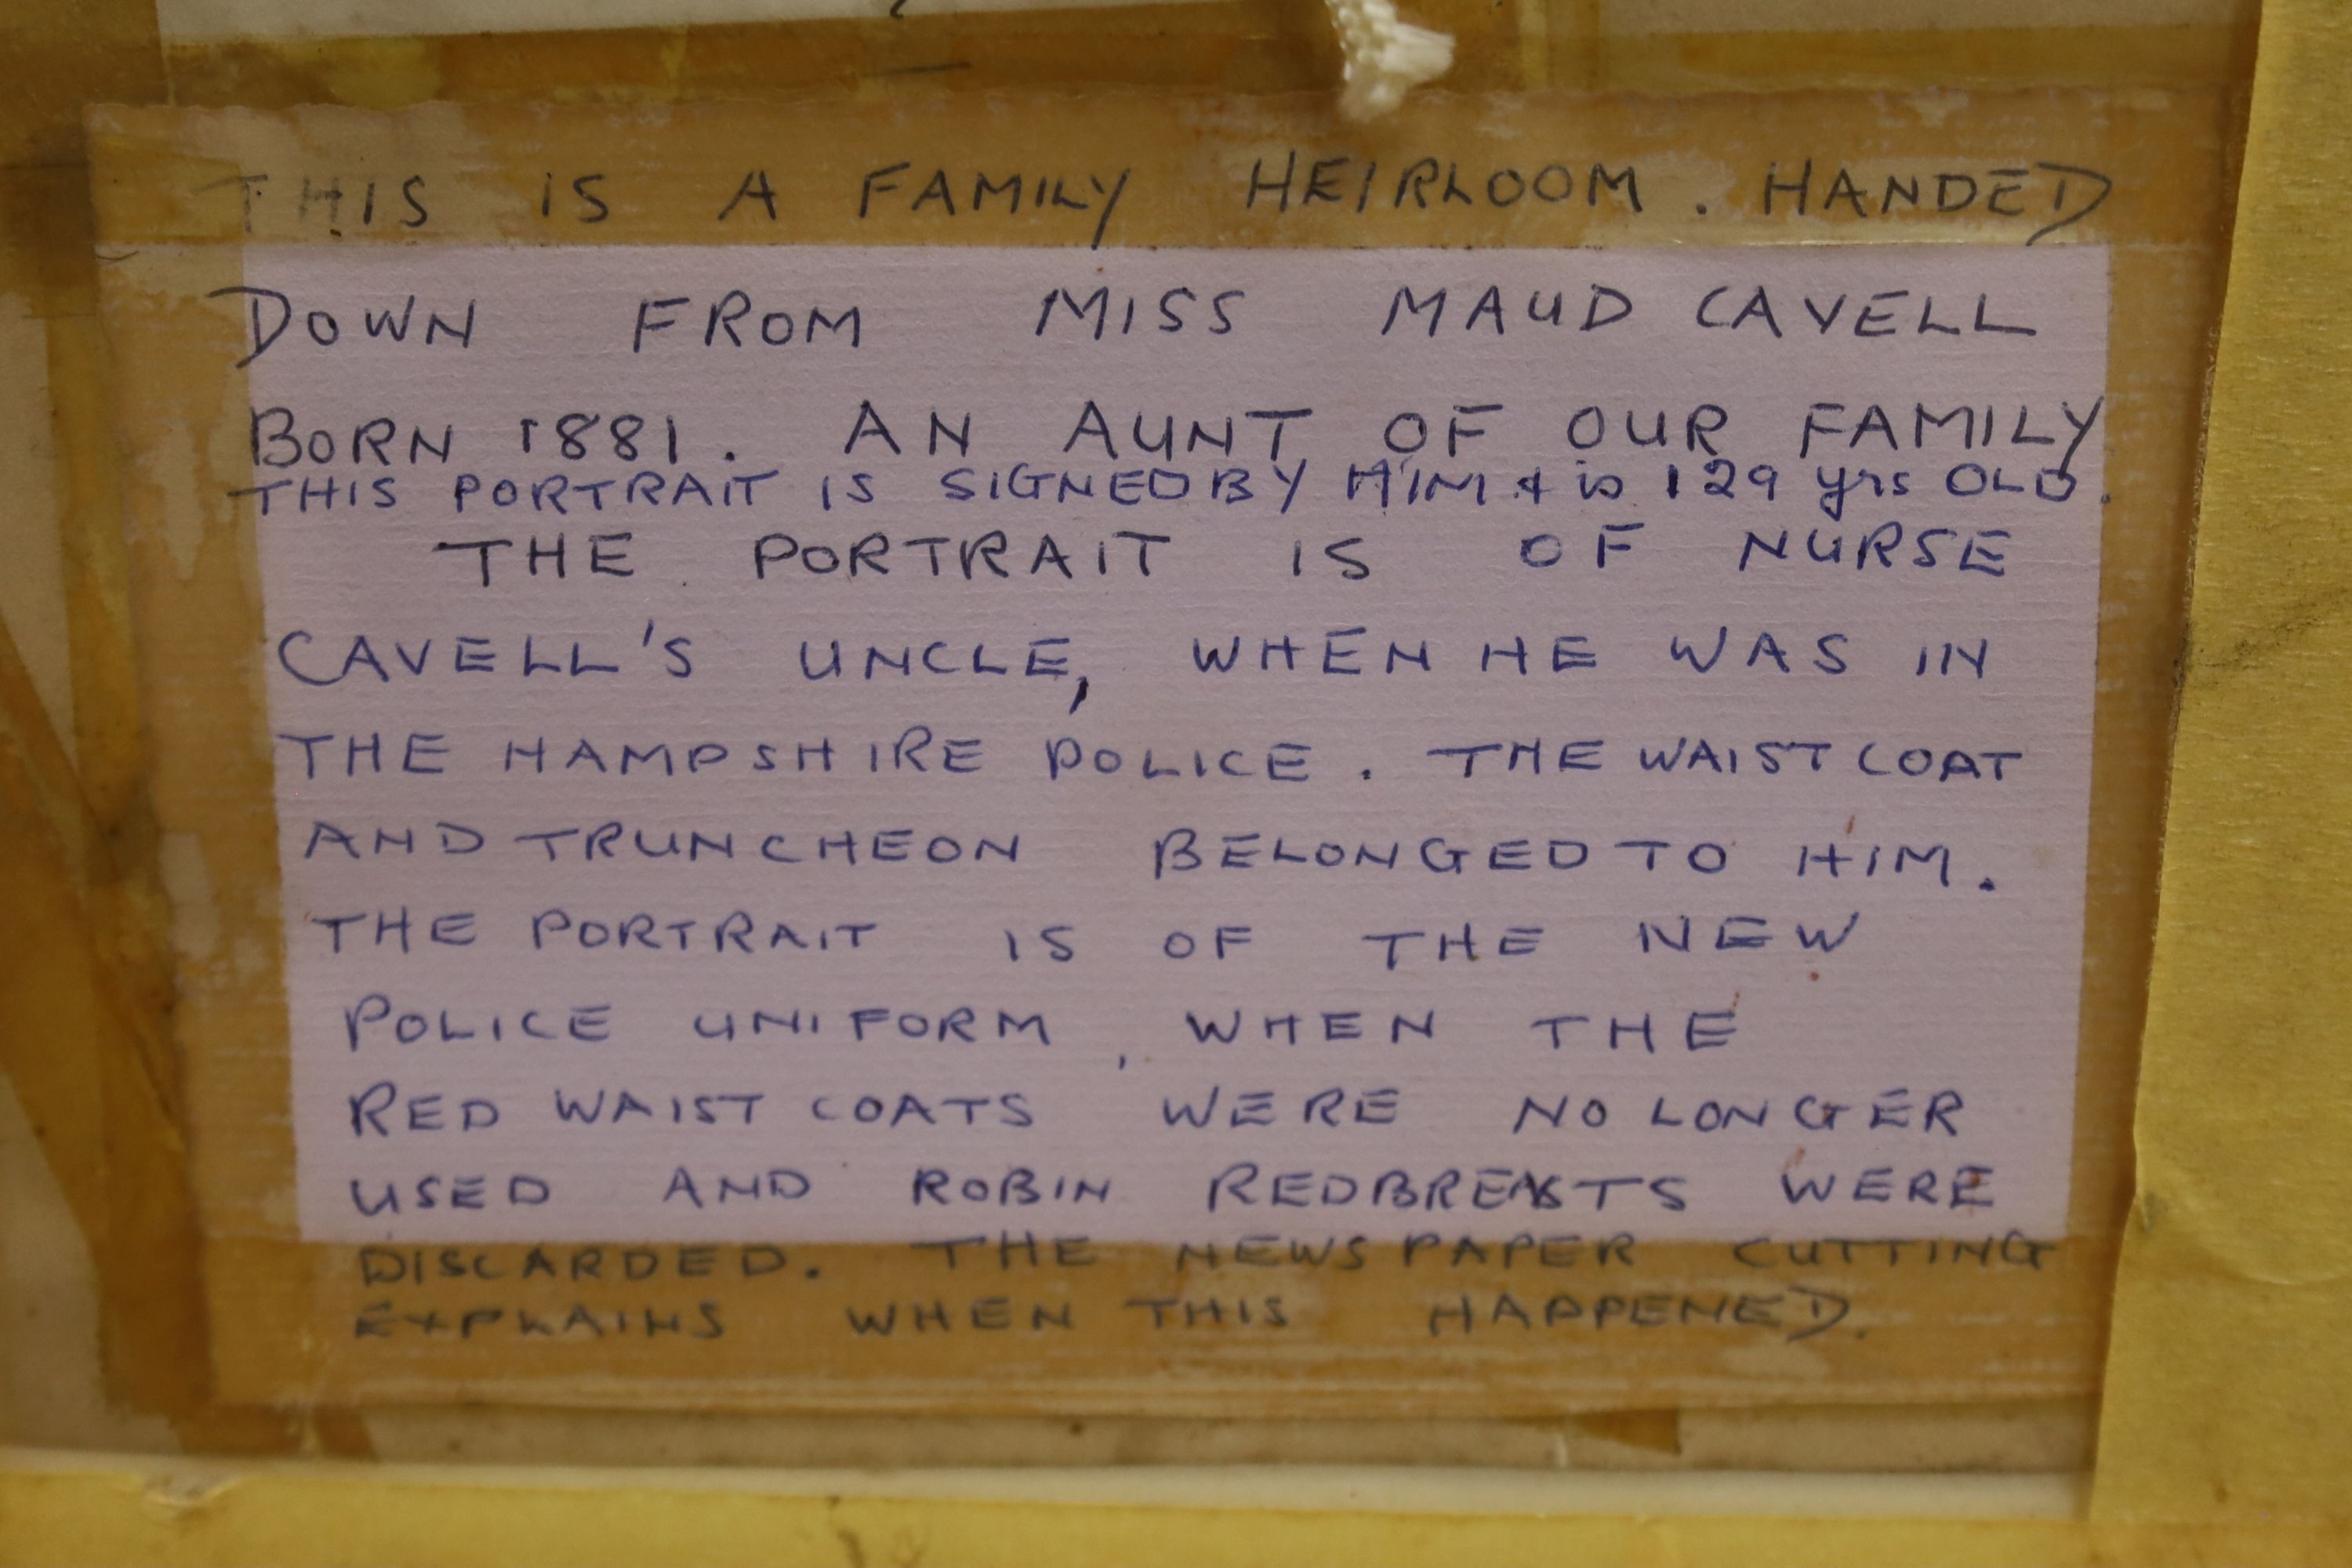 THIS IS A FAMILY HEIRLOOM. HANDED
DOWN FROM MISS MAUD CAVELL
BORN 1881. AN AUNT OF OUR FAMILY
THIS PORTRAIT IS SIGNED BY HIM & is 129 yrs OLD.
THE PORTRAIT IS OF NURSE
CAVELL'S UNCLE, WHEN HE WAS IN
THE HAMPSHIRE POLICE. THE WAISTCOAT
AND TRUNCHEON BELONGED TO HIM.
THE PORTRAIT IS OF THE NEW
POLICE UNIFORM, WHEN THE
RED WAISTCOATS WERE NO LONGER
USED AND ROBIN REDBREASTS WERE
DISCARDED. THE NEWSPAPER CUTTING
EXPLAINS WHEN THIS HAPPENED.